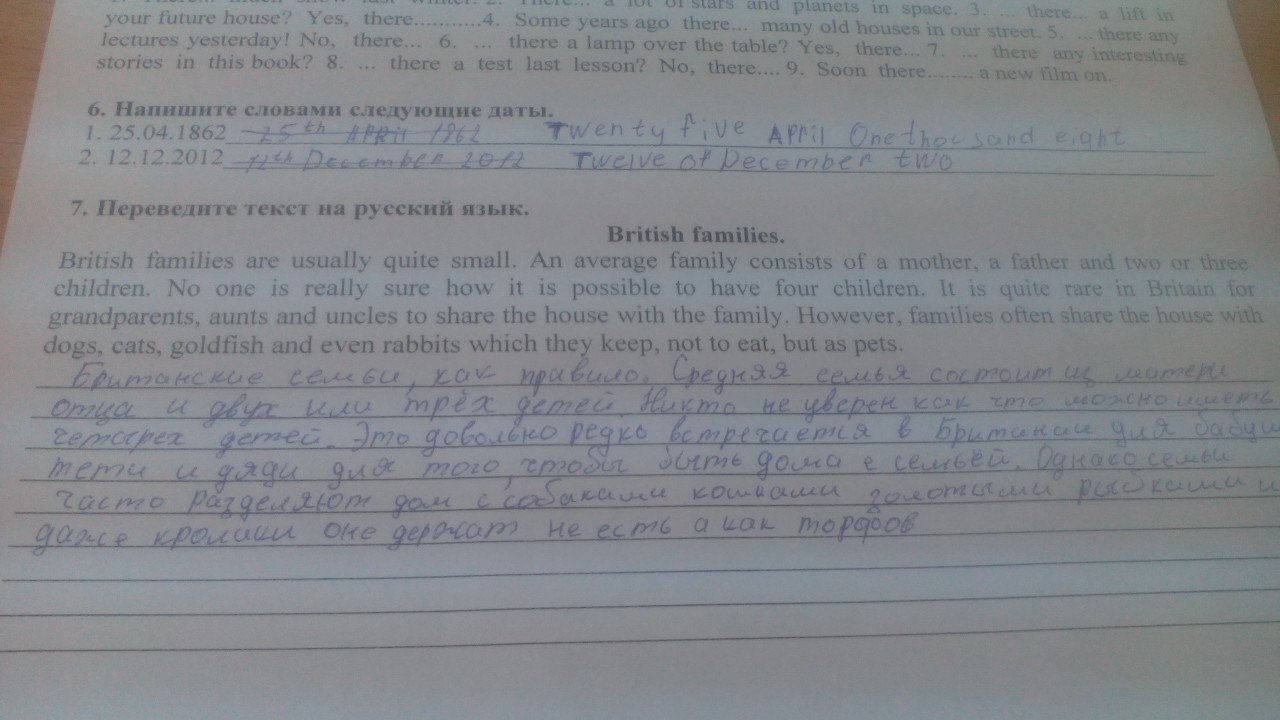 your future house? Yes, there...........4. Some years ago there... many old houses in our street. 5. ... there any
lectures yesterday! No, there... 6. ... there a lamp over the table? Yes, there... 7. ... there any interesting
stories in this book? 8. ... there a test last lesson? No, there.... 9. Soon there........ a new film on.
6. Напишите словами следующие даты.
1. 25.04.1862 25th APRIl 1962 Twenty five APRil One thousand eight
2. 12.12.2012 12th December 2012 Twelve of December two
7. Переведите текст на русский язык.
British families.
British families are usually quite small. An average family consists of a mother, a father and two or three
children. No one is really sure how it is possible to have four children. It is quite rare in Britain for
grandparents, aunts and uncles to share the house with the family. However, families often share the house with
dogs, cats, goldfish and even rabbits which they keep, not to eat, but as pets.
Британские семьи, как правило. Средняя семья состоит из матери
отца и двух или трёх детей. Никто не уверен как что можно иметь
четырех детей. Это довольно редко встречается в Британии для бабуш
тети и дяди для того, чтобы быть дома с семьёй. Однако семьи
часто разделяют дом с собаками кошками золотыми рыбками и
даже кролики оне держат не есть а как